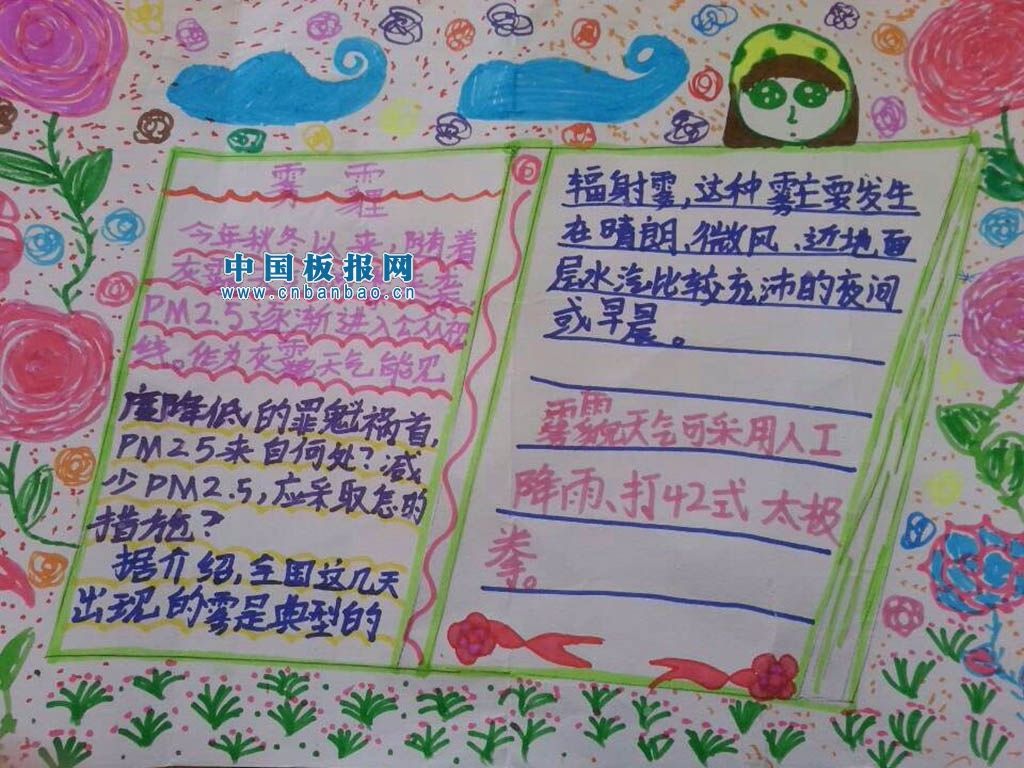 雾霾
今年秋冬以来,随着
灰
中国板报网
www.cnbanbao.cn
PM2.5逐渐进入公众视
线。作为灰霾天气能见
度降低的罪魁祸首,
PM2.5来自何处?减
少PM2.5,应采取怎的
措施?
据介绍,全国这几天
出现的雾是典型的
辐射雾,这种雾主要发生
在晴朗、微风、近地面
层水汽比较充沛的夜间
或早晨。
雾霾天气可采用人工
降雨、打42式太极
拳。